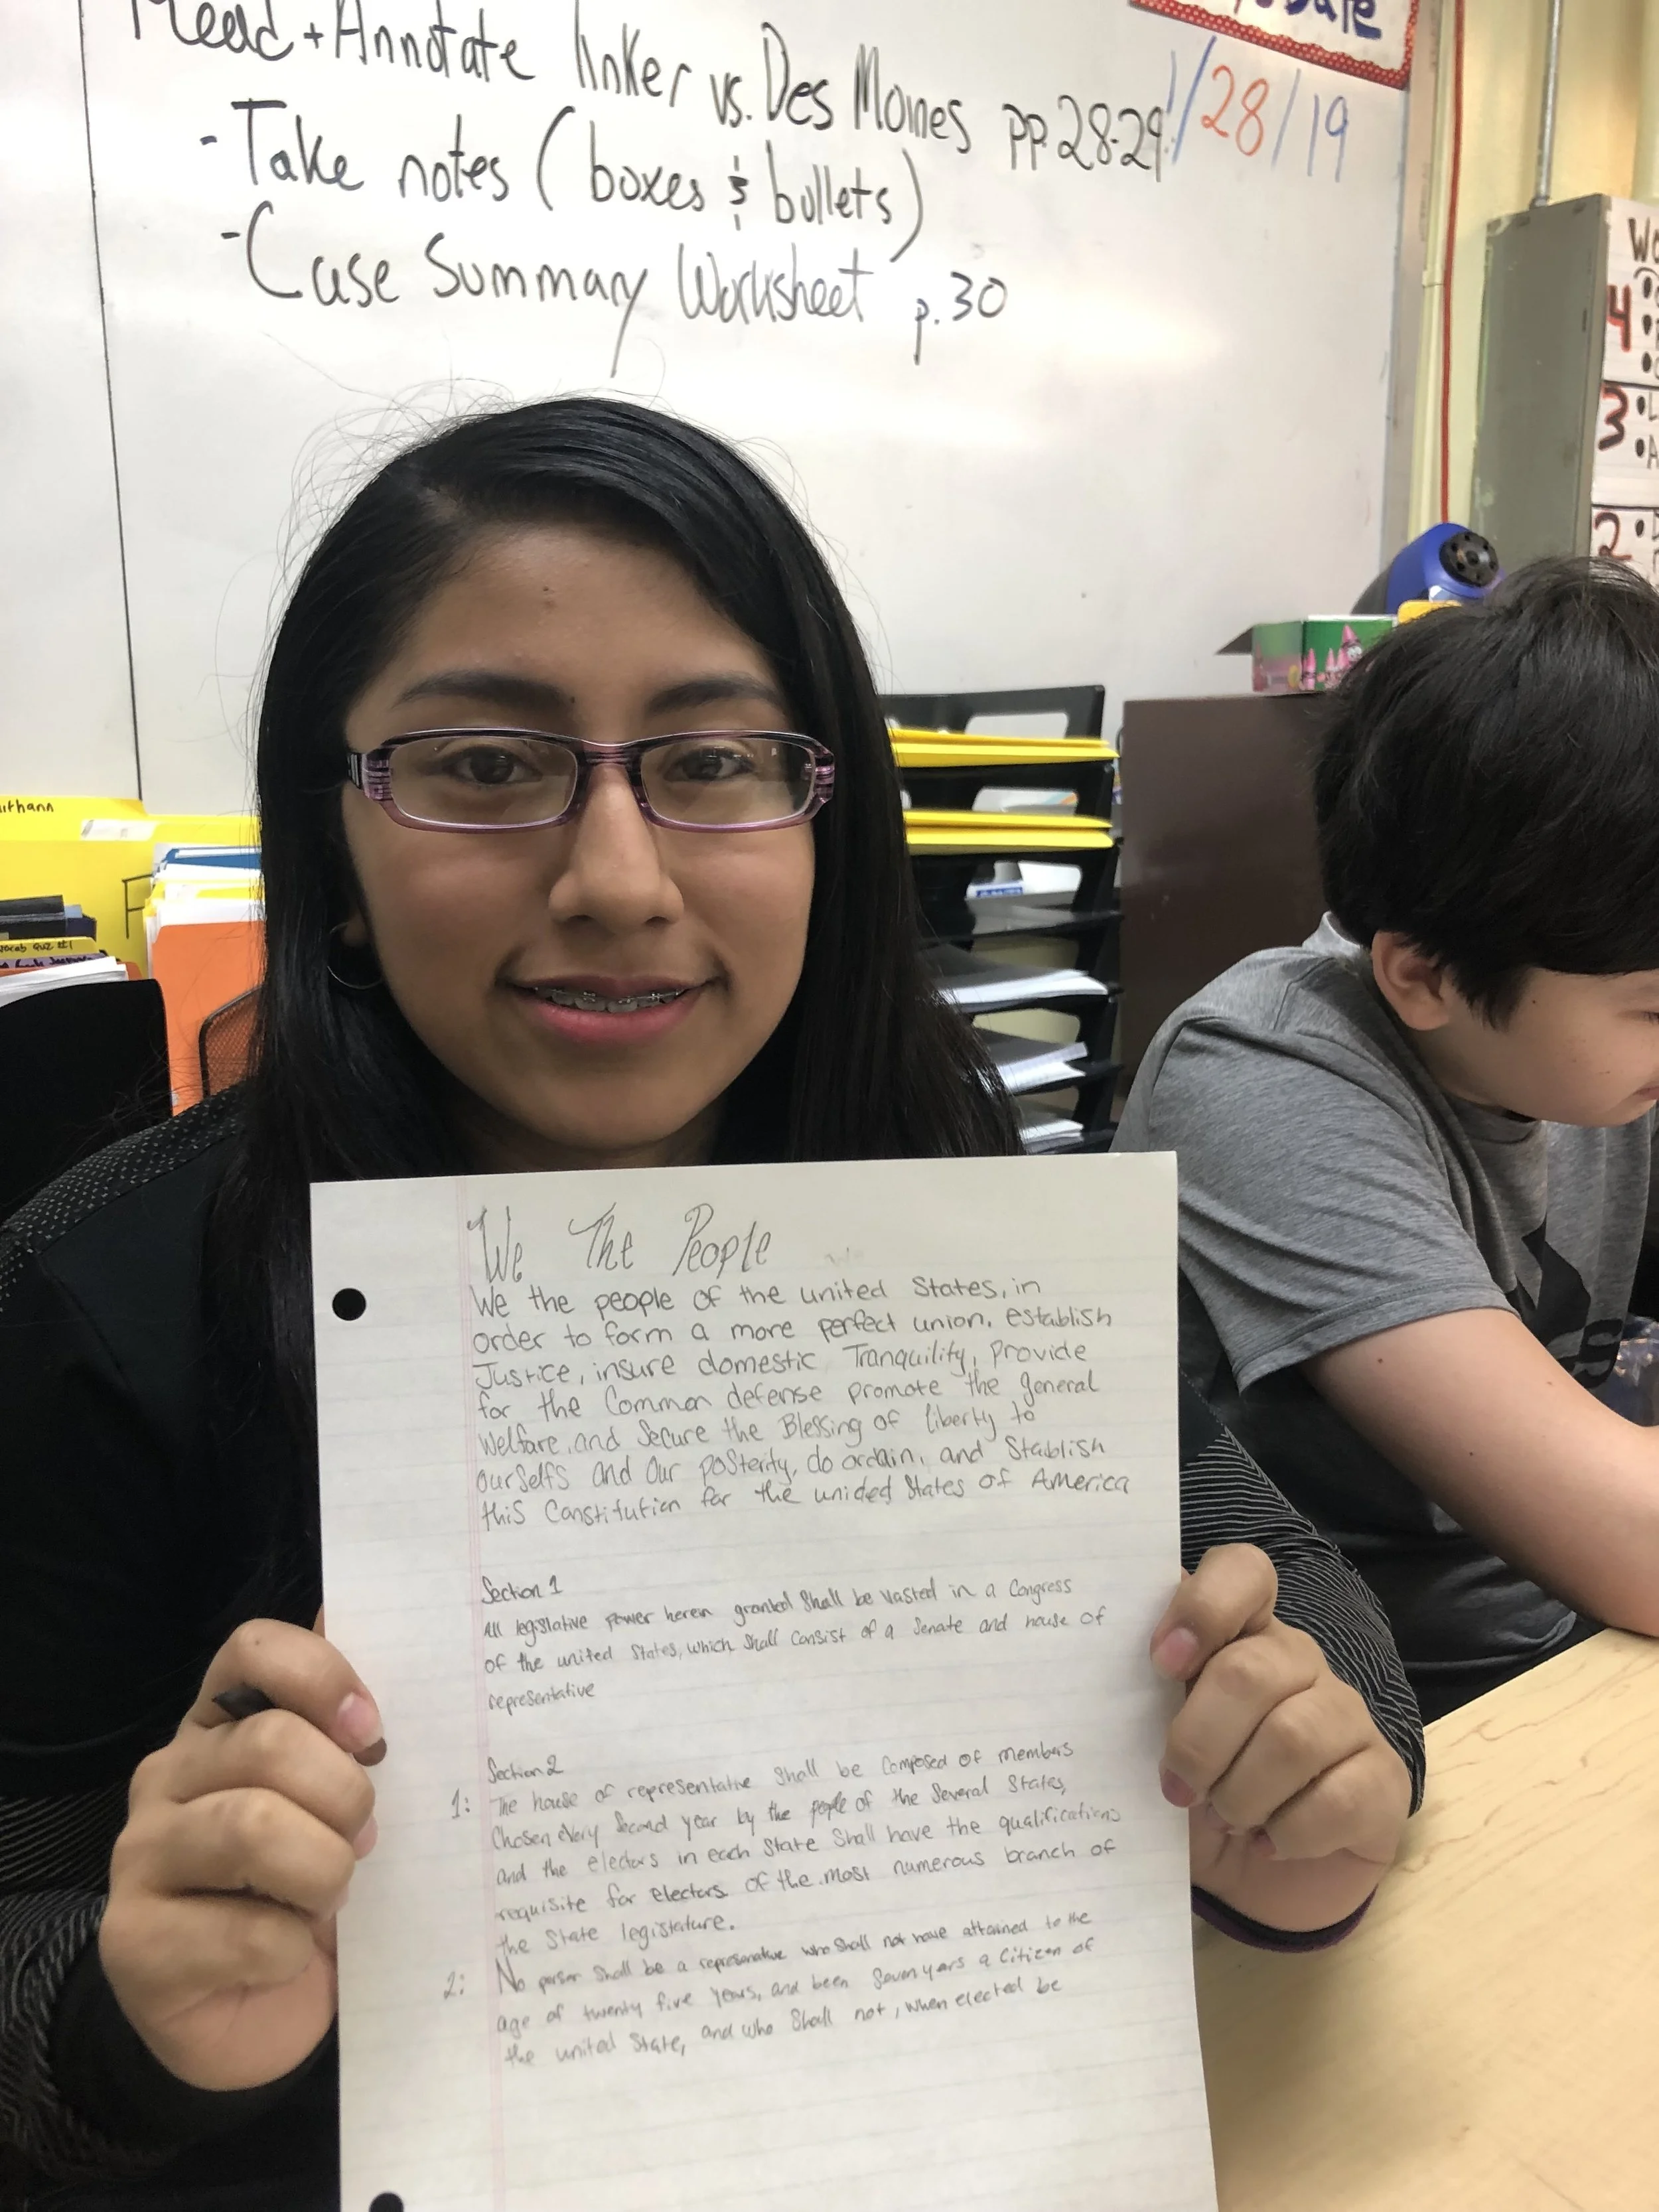 Read + Annotate Tinker vs. Des Moines pp. 28-29
- Take notes (boxes & bullets)
- Case Summary Worksheet p. 30
Date
1/28/19
4
3
2
vocab Quiz #1
We The People
We the people of the united States, in
order to form a more perfect union, establish
Justice, insure domestic Tranquility, provide
for the Common defense promote the general
Welfare, and Secure the Blessing of liberty to
ourselfs and our posterity, do ordain, and Stablish
this Constitution for the unided States of America
Section 1
All legislative power herein granted Shall be vasted in a Congress
of the united States, which Shall Consist of a Senate and house of
representative
Section 2
1: The house of representative Shall be Composed of members
Chosen every Second year by the people of the Several States,
and the electors in each State Shall have the qualifications
requisite for electors of the most numerous branch of
the State legislature.
2: No person Shall be a represenative who Shall not have attained to the
age of twenty five years, and been Seven years a Citizen of
the united State, and who Shall not, when elected be